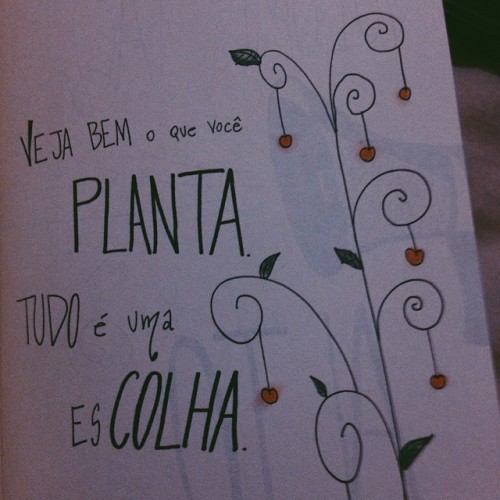 VEJA BEM o que você
PLANTA.
TUDO é uma
ESCOLHA.